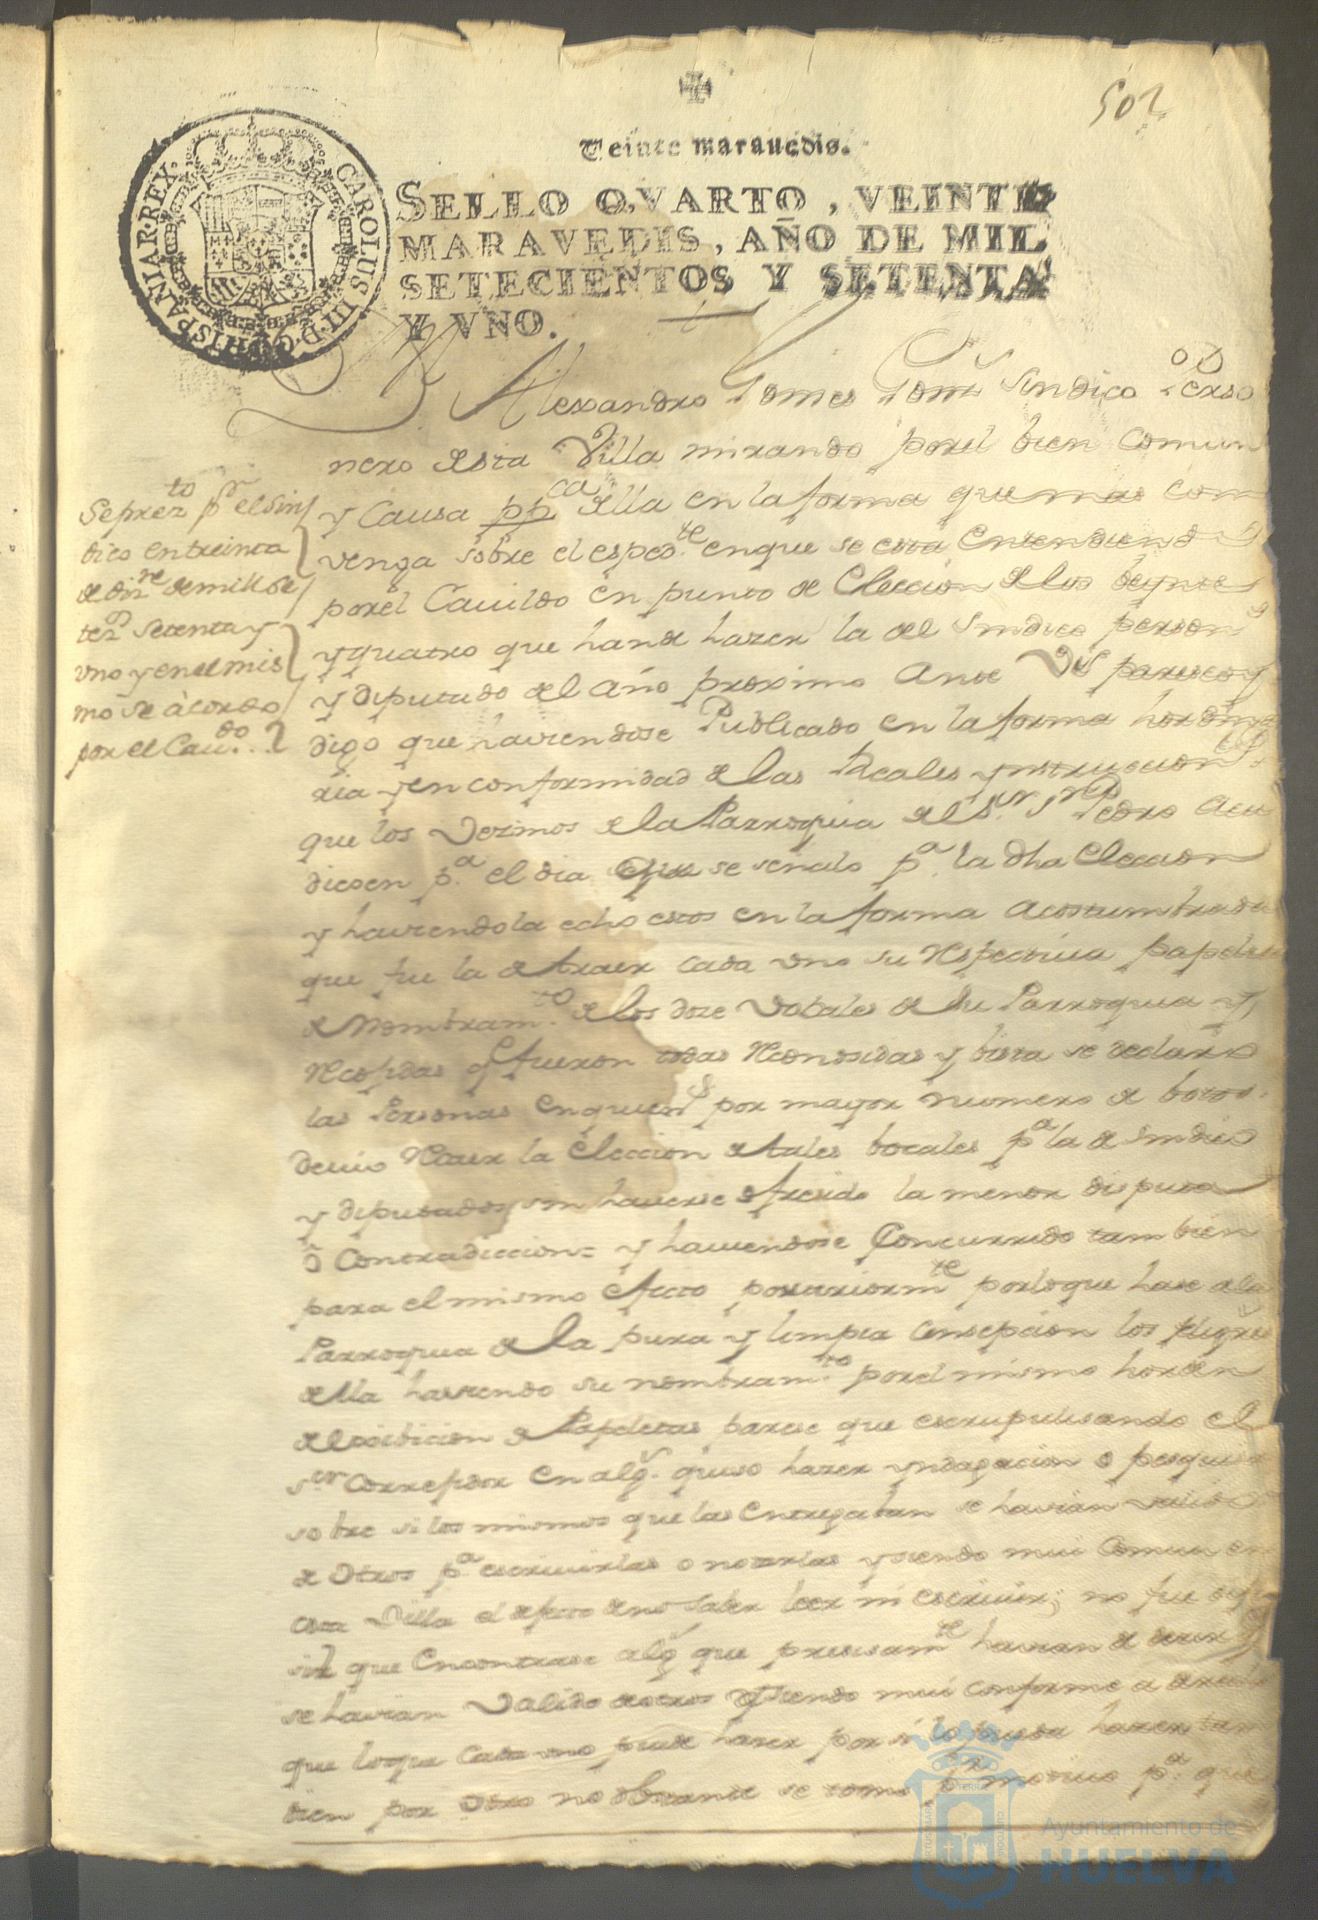 502
Veinte marauedis.
SELLO QVARTO, VEINTE
MARAVEDIS, AÑO DE MIL
SETECIENTOS Y SETENTA
Y VNO.
CAROLUS III D G HISPANIAR REX
Alexandro Gomes Sindico Perso
nero desta Villa mirando porel bien Comun
y Causa pp.ca della en la forma que mas com
venga sobre el esped.te enque se esta Entendiend
porel Cauildo en punto de Eleccion delos beynte
y quatro que hande hazer la del Sindico person
y diputado del año proximo Ante Vs paresco y
digo que haviendose Publicado en la forma hordin
ria y en conformidad de las Reales ynstrucion
que los Vezinos de la Parroquia del S.r S.n Pedro acu
diesen p.a el dia que se señalo p.a la dha Eleccion
y haviendola echo estos en la forma Acostumbrada
que fue la de traer cada uno su respectiva papele
de Nombram.to de los doze Vobales de su Parroquia y
Recojidas q fueron todas Reconosidas y bista se declaro
las Personas En quien.s por mayor numero de botos
devio Recaer la Eleccion de tales bocales p.a la de Sindico
y diputados sin haverse ofresido la menor disputa
ò Contradiccion = y haviendose Concurrido tambien
para el mismo efecto posteriorm.te porloque hase ala
Parroquia de la pura y limpia Consepcion los feligre
della haviendo su nombram.to porel mismo horden
de Papeletas parese que escrupulisando el
S.or Correjidor en alg.s quiso hazer yndagacion o pesquisa
sobre si los mismos que las Entregaban se havian valido
de Otros p.a escrivirlas o notarlas y siendo mui Comun en
esta Villa el defecto de no saber leer ni escrivir; no fue difi
sil que Encontrase alg.s que presisam.te havian de dezir q
se havian Valido de otros y siendo mui conforme a
que loque Cada uno puede hazer por si lo pueda hazer tan
bien por Otro no obstante se tomo p.r motivo p.a que
Se prez.to p.r el Sin
dico en treinta
de diz.re de mill se
tez.s setenta y
uno y en el mis
mo se acordo
por el Cau.do
Ayuntamiento de
HUELVA